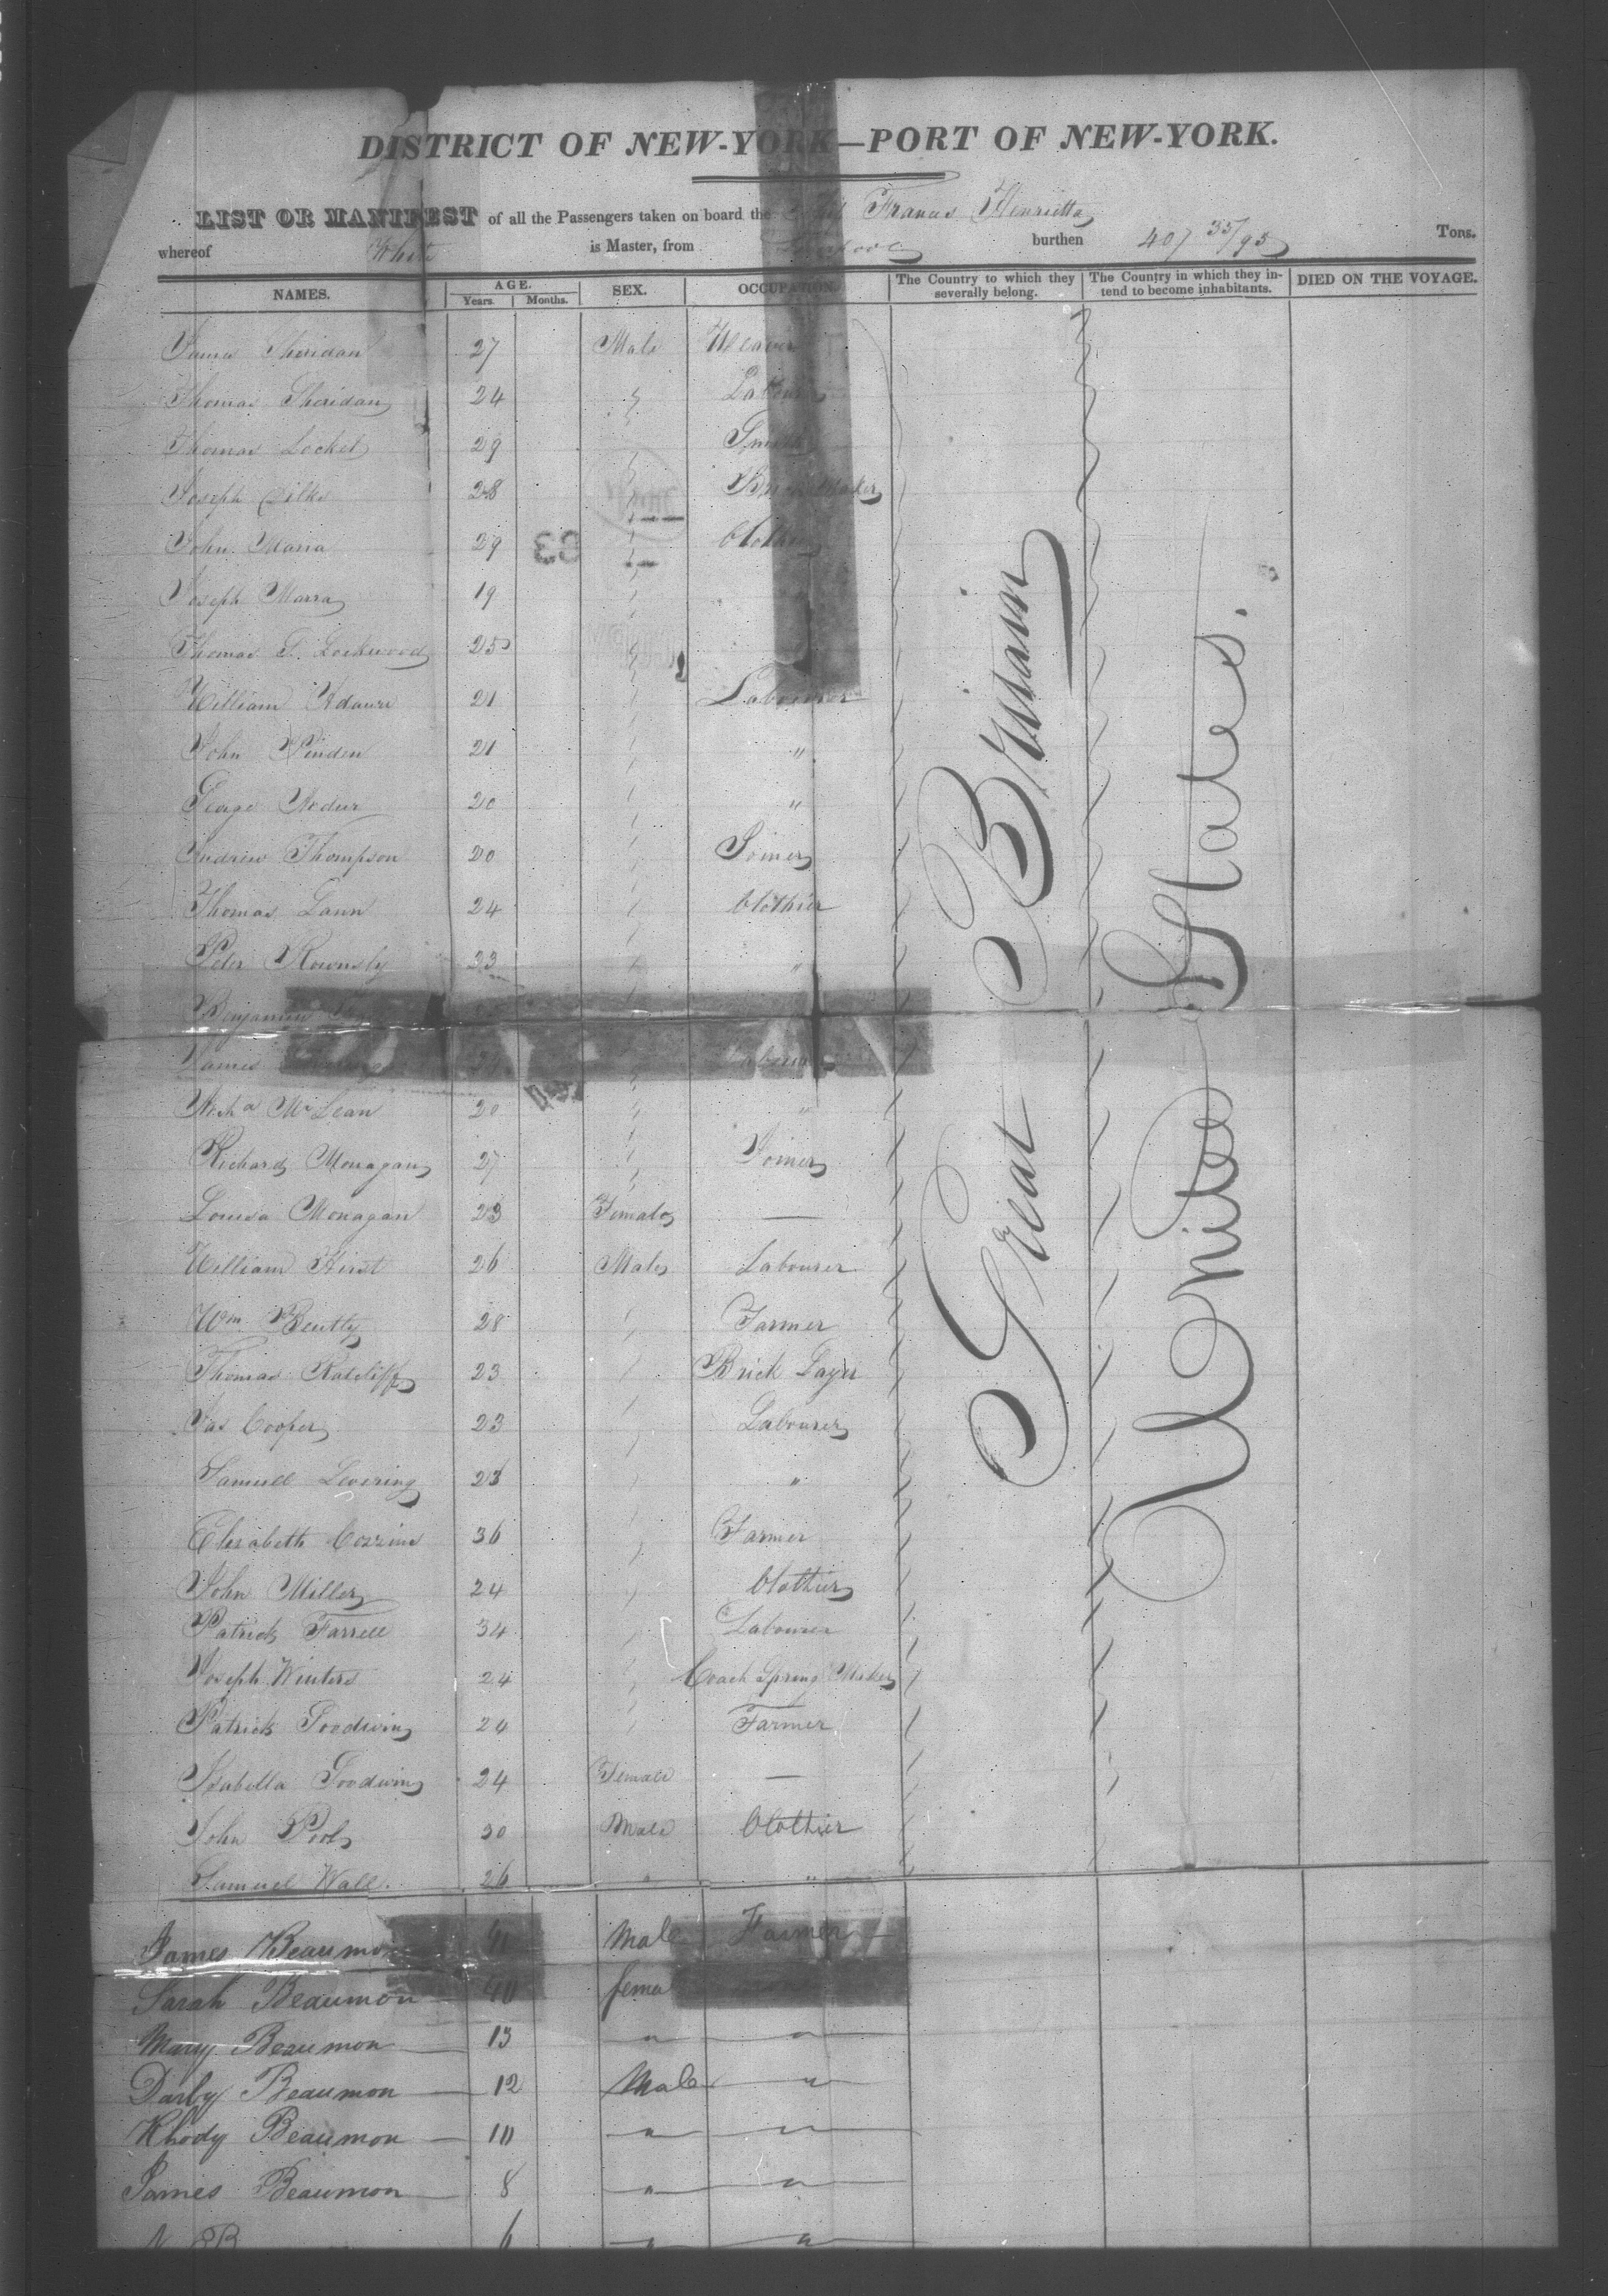 DISTRICT OF NEW-YORK—PORT OF NEW-YORK.
LIST OR MANIFEST of all the Passengers taken on board the Francis Henrietta
whereof White is Master, from Liverpool burthen 407 35/95 Tons.
NAMES. AGE. Years. Months. SEX. OCCUPATION. The Country to which they severally belong. The Country in which they intend to become inhabitants. DIED ON THE VOYAGE.
Great Britain
United States.
James Sheridan 27 Male Weaver
Thomas Sheridan 24 Labourer
Thomas Locket 29 Smith
Joseph 28 Maker
John Marra 29 Clothier
Joseph Marra 19
Thomas Lockwood 25
William 21 Labourer
John 21 "
George 20 "
Andrew Thompson 20 Joiner
Thomas Lann 24 Clothier
Peter Rownsly 23 "
Benjamin
James Labourer
McLean 20 "
Richard Monagan 27 Joiner
Louisa Monagan 23 Female —
William Hirst 26 Male Labourer
Wm. Bently 28 Farmer
Thomas Ratcliff 23 Brick Layer
Jas Cooper 23 Labourer
Samuel Levering 23 "
Elizabeth 36 Farmer
John Miller 24 Clothier
Patrick Farrell 34 Labourer
Joseph Winters 24 Coach Spring Maker
Patrick Goodwin 24 Farmer
Isabella Goodwin 24 Female —
John Pool 30 Male Clothier
Samuel Wall. 26 " "
James Beaumon 41 Male Farmer
Sarah Beaumon 40 fema
Mary Beaumon 13 " "
Darby Beaumon 12 Male "
Rhody Beaumon 10 " "
James Beaumon 8 " "
6 " "